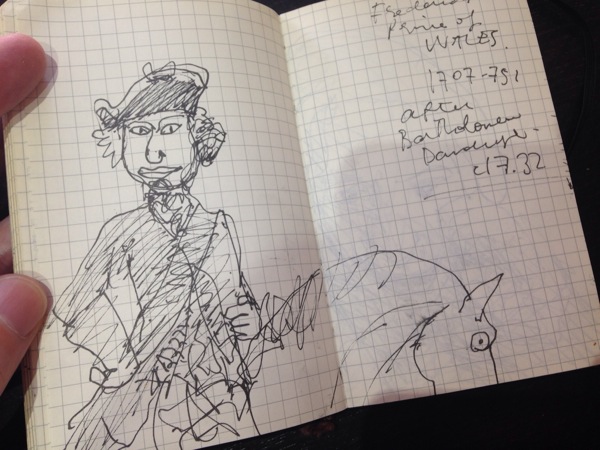 Frederick
Prince of
WALES.
1707-751
after
Bartholomew
Dandridge.
c17.32